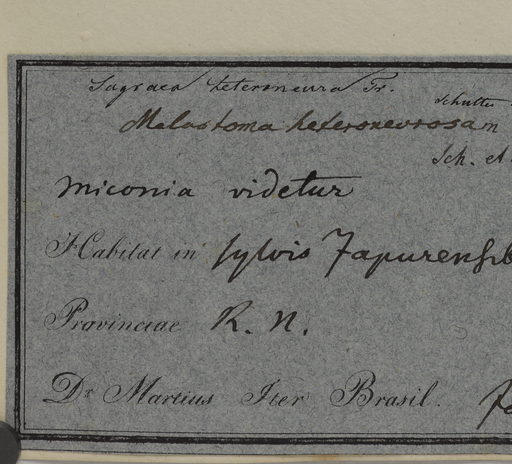 Sagraea heteroneura Tr.
Schultes
Melastoma heteronevrosam
Sch. et
Miconia videtur
Habitat in sylvis Japurensib
Provinciae R. N.
Dr Martius Iter Brasil.